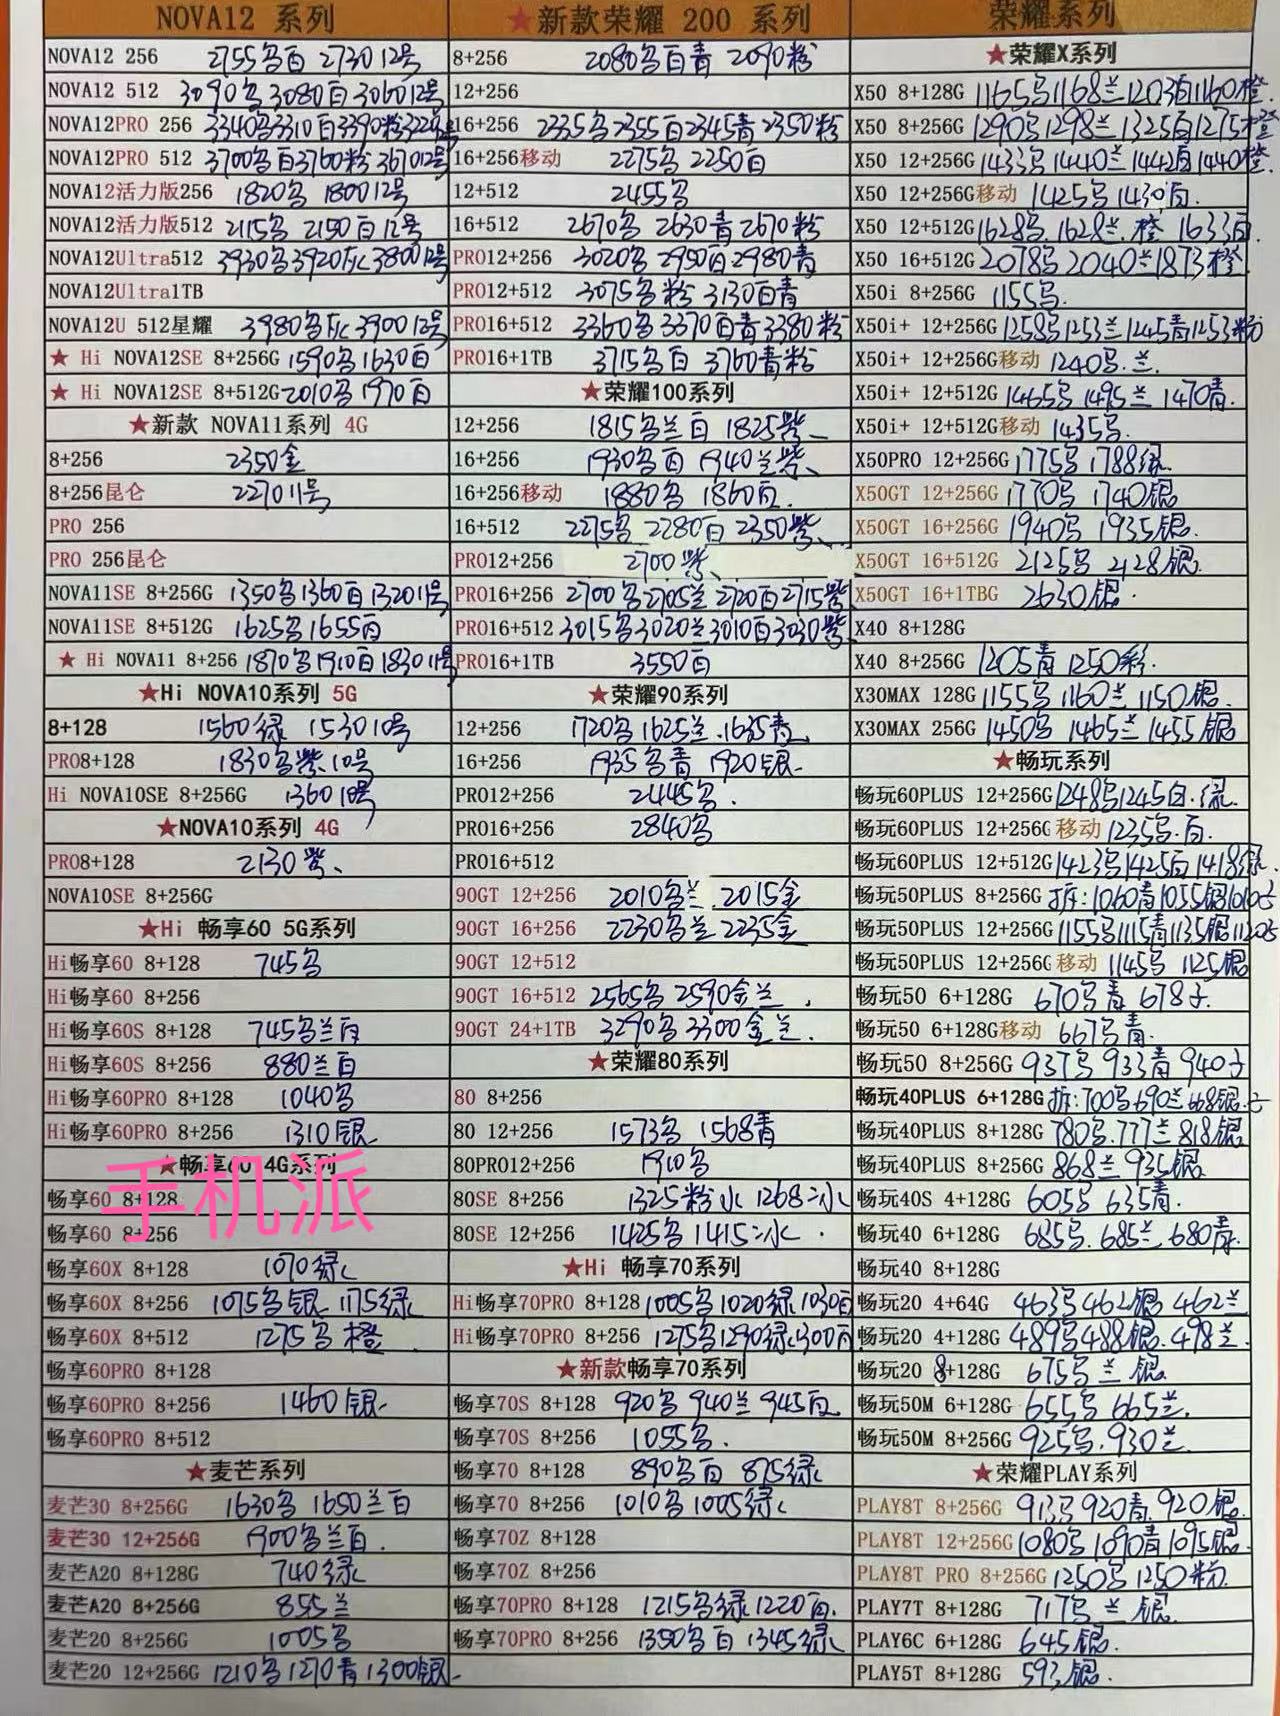 NOVA12 系列
NOVA12 256 2755乌白 2730 12号
NOVA12 512 3090乌 3080白 3060 12号
NOVA12PRO 256 3340乌 3310白 3390粉
NOVA12PRO 512 3700乌白 3760粉 3670 12号
NOVA12活力版256 1820乌 1800 12号
NOVA12活力版512 2115乌 2150白 12号
NOVA12Ultra512 3930乌 3920灰 3800 12号
NOVA12Ultra1TB
NOVA12U 512星耀 3980乌灰 3900 12号
★ Hi NOVA12SE 8+256G 1590乌 1630白
★ Hi NOVA12SE 8+512G 2010乌 1970白
★新款 NOVA11系列 4G
8+256 2350金
8+256昆仑 2270 11号
PRO 256
PRO 256昆仑
NOVA11SE 8+256G 1350乌 1360白 1320 11号
NOVA11SE 8+512G 1625乌 1655白
★ Hi NOVA11 8+256 1870乌 1910白 1830 11号
★Hi NOVA10系列 5G
8+128 1560绿 1530 10号
PRO8+128 1830乌紫.10号
Hi NOVA10SE 8+256G 1360 10号
★NOVA10系列 4G
PRO8+128 2130紫、
NOVA10SE 8+256G
★Hi 畅享60 5G系列
Hi畅享60 8+128 745乌
Hi畅享60 8+256
Hi畅享60S 8+128 745乌兰白
Hi畅享60S 8+256 880兰白
Hi畅享60PRO 8+128 1040乌
Hi畅享60PRO 8+256 1310银
★畅享60 4G系列
手机派
畅享60 8+128
畅享60 8+256
畅享60X 8+128 1070绿
畅享60X 8+256 1075乌银 1175绿
畅享60X 8+512 1275乌 橙
畅享60PRO 8+128
畅享60PRO 8+256 1460银
畅享60PRO 8+512
★麦芒系列
麦芒30 8+256G 1630乌 1650兰白
麦芒30 12+256G 1900乌兰白.
麦芒A20 8+128G 740绿
麦芒A20 8+256G 855兰
麦芒20 8+256G 1005乌
麦芒20 12+256G 1210乌 1270青 1300银
★新款荣耀 200 系列
8+256 2080乌白青 2090粉
12+256
16+256 2335乌 2355白 2345青 2350粉
16+256移动 2275乌 2250白
12+512 2455乌
16+512 2670乌 2630青 2670粉
PRO12+256 3020乌 2950白 2980青
PRO12+512 3075乌粉 3130白青
PRO16+512 3360乌 3370白青 3380粉
PRO16+1TB 3715乌白 3760青粉
★荣耀100系列
12+256 1815乌兰白 1825紫、
16+256 1930乌白 1940兰紫、
16+256移动 1880乌 1860白.
16+512 2275乌 2280白 2350紫、
PRO12+256 2700紫、
PRO16+256 2700乌 2705兰 2720白 2715紫
PRO16+512 3015乌 3020兰 3010白 3030紫
PRO16+1TB 3550白
★荣耀90系列
12+256 1720乌 1625兰.1635青
16+256 1935乌青 1920银
PRO12+256 2445乌.
PRO16+256 2840乌
PRO16+512
90GT 12+256 2010乌兰.2015金
90GT 16+256 2230乌兰 2235金
90GT 12+512
90GT 16+512 2565乌 2590金兰.
90GT 24+1TB 3290乌 3300金兰.
★荣耀80系列
80 8+256
80 12+256 1573乌 1568青
80PRO12+256 1910乌
80SE 8+256 1325粉水 1268冰
80SE 12+256 1425乌 1415冰.
★Hi 畅享70系列
Hi畅享70PRO 8+128 1005乌 1020绿 1030白
Hi畅享70PRO 8+256 1275乌 1290绿 1300白
★新款畅享70系列
畅享70S 8+128 920乌 940兰 945白
畅享70S 8+256 1055乌.
畅享70 8+128 890乌白 875绿
畅享70 8+256 1010乌 1005绿
畅享70Z 8+128
畅享70Z 8+256
畅享70PRO 8+128 1215乌绿 1220白.
畅享70PRO 8+256 1350乌白 1345绿
荣耀系列
★荣耀X系列
X50 8+128G 1165乌 1168兰 1203白 1160橙.
X50 8+256G 1290乌 1298兰 1325白 1275橙
X50 12+256G 1433乌 1440兰 1442白 1440橙.
X50 12+256G移动 1425乌 1430白.
X50 12+512G 1628乌.1628兰.橙 1633白
X50 16+512G 2078乌 2040兰 1873橙
X50i 8+256G 1155乌.
X50i+ 12+256G 1258乌 1253兰 1245青 1253粉
X50i+ 12+256G移动 1240乌.兰.
X50i+ 12+512G 1465乌 1495兰 1470青.
X50i+ 12+512G移动 1435乌.
X50PRO 12+256G 1775乌 1788绿.
X50GT 12+256G 1770乌 1740银
X50GT 16+256G 1940乌 1935银.
X50GT 16+512G 2125乌 2128银.
X50GT 16+1TBG 2630银.
X40 8+128G
X40 8+256G 1205青 1250彩.
X30MAX 128G 1155乌 1160兰 1150银.
X30MAX 256G 1450乌 1465兰 1455银
★畅玩系列
畅玩60PLUS 12+256G 1248乌 1245白.绿.
畅玩60PLUS 12+256G 移动 1235乌.白.
畅玩60PLUS 12+512G 1423乌 1425白 1418绿.
畅玩50PLUS 8+256G 拆:1060青 1055银
畅玩50PLUS 12+256G 1155乌 1115青 1135银
畅玩50PLUS 12+256G 移动 1145乌 1125银
畅玩50 6+128G 670乌青 678子.
畅玩50 6+128G移动 667乌青.
畅玩50 8+256G 937乌 933青 940子
畅玩40PLUS 6+128G 拆:700乌 690兰 668银.
畅玩40PLUS 8+128G 780乌.777兰 818银
畅玩40PLUS 8+256G 868兰 935银
畅玩40S 4+128G 605乌 635青.
畅玩40 6+128G 685乌.685兰.680青.
畅玩40 8+128G
畅玩20 4+64G 463乌 462银 462兰
畅玩20 4+128G 489乌 488银.498兰.
畅玩20 8+128G 675乌兰 银.
畅玩50M 6+128G 655乌 665兰.
畅玩50M 8+256G 925乌.930兰.
★荣耀PLAY系列
PLAY8T 8+256G 913乌 920青.920银.
PLAY8T 12+256G 1080乌 1090青 1095银.
PLAY8T PRO 8+256G 1250乌 1250粉.
PLAY7T 8+128G 717乌 兰 银.
PLAY6C 6+128G 645银.
PLAY5T 8+128G 593银.